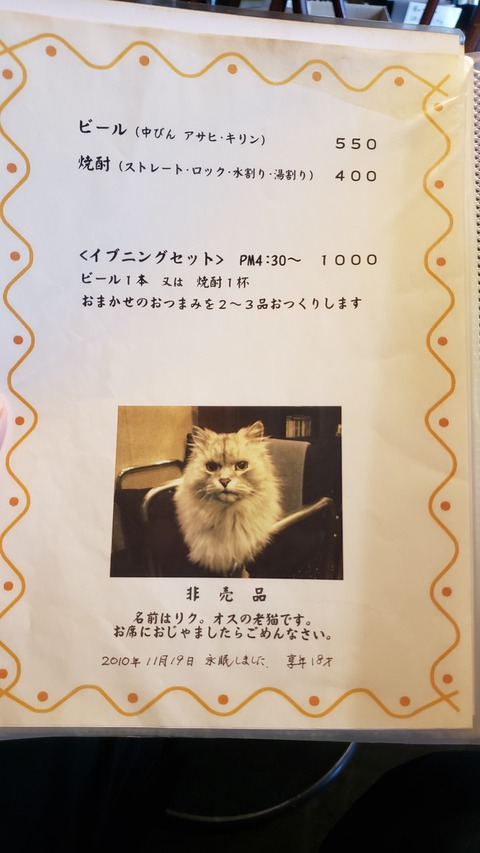 ビール（中びん アサヒ・キリン） 550
焼酎（ストレート・ロック・水割り・湯割り） 400
<イブニングセット> PM4:30〜 1000
ビール1本 又は 焼酎1杯
おまかせのおつまみを2〜3品おつくりします
非売品
名前はリク。オスの老猫です。
お席におじゃましたらごめんなさい。
2010年11月19日 永眠しました。 享年18才